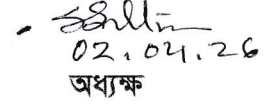 02.04.26
অধ্যক্ষ